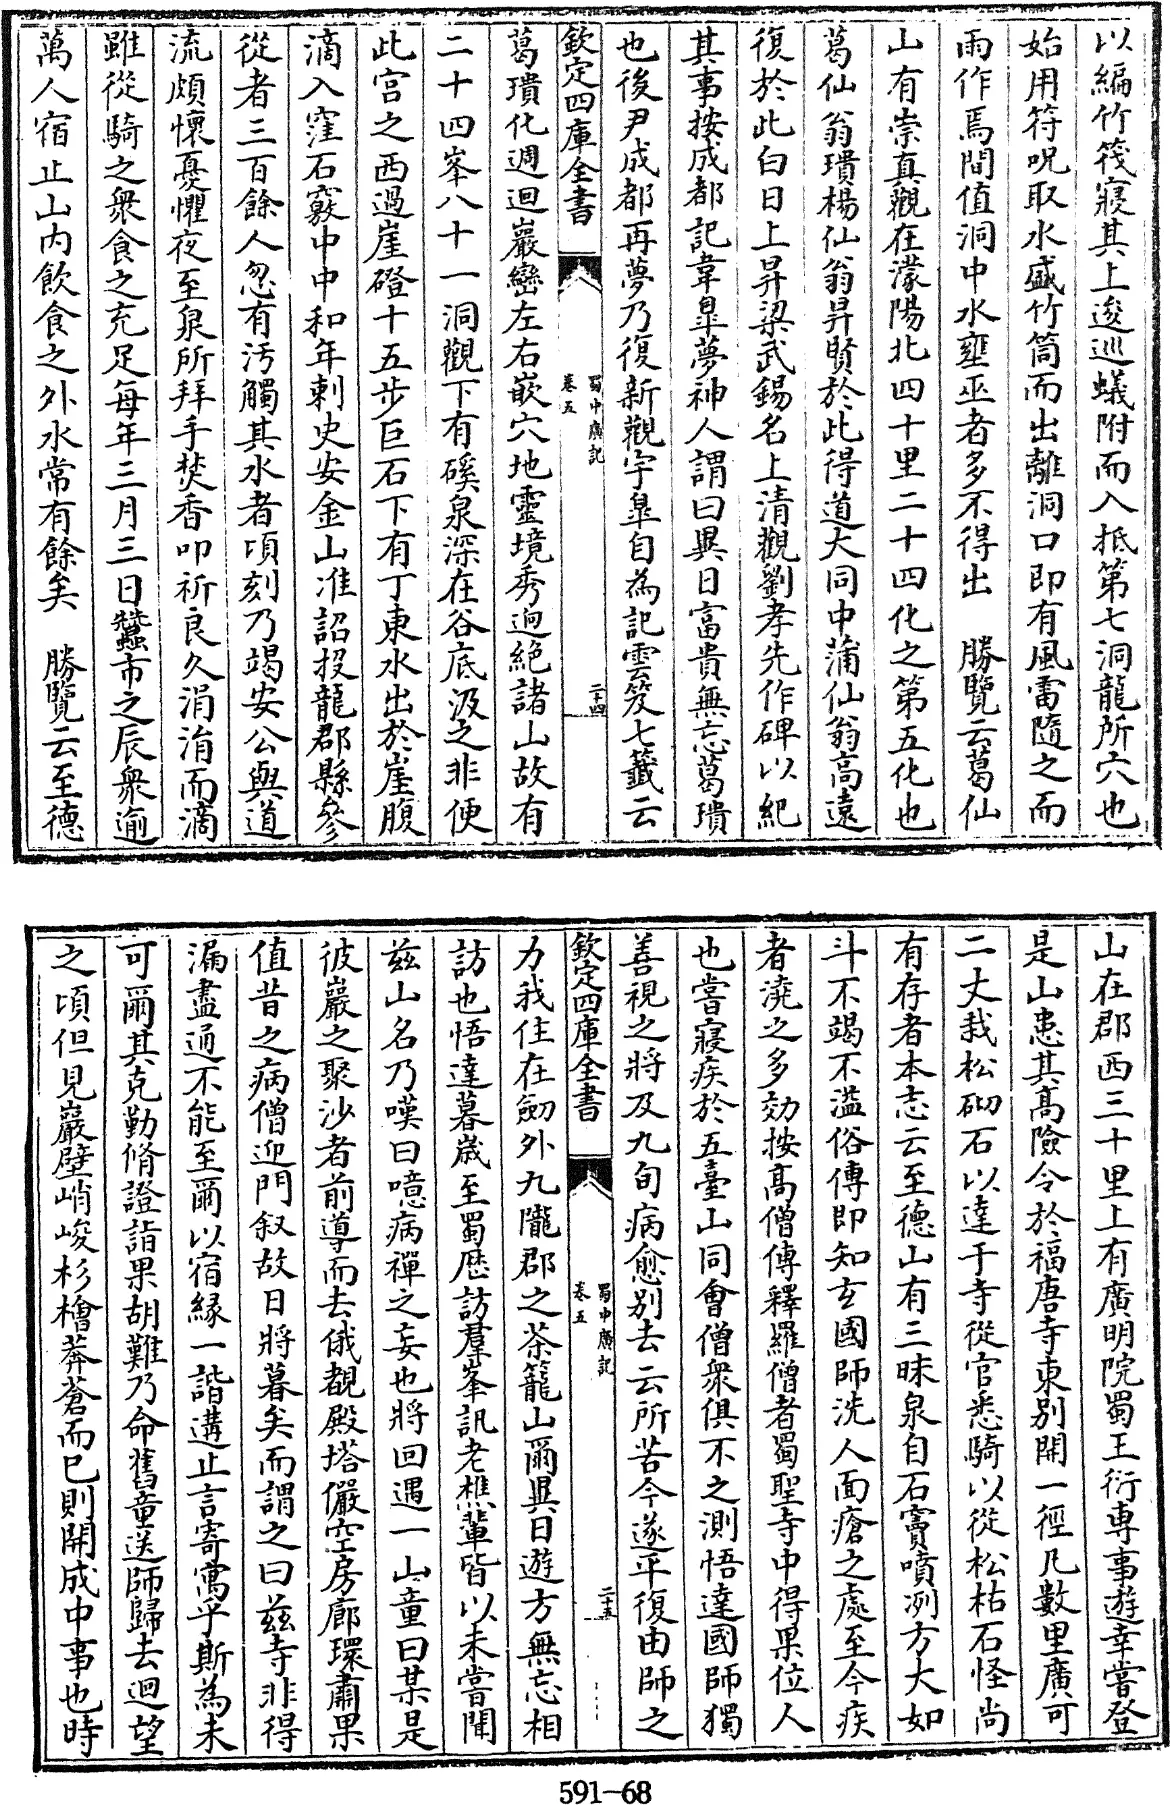 以編竹筏寢其上逡巡蟻附而入抵第七洞龍所穴也
始用符呪取水盛竹筒而出離洞口即有風雷隨之而
雨作焉間值洞中水壅巫者多不得出　勝覽云葛仙
山有崇真觀在濛陽北四十里二十四化之第五化也
葛仙翁璝楊仙翁昇賢於此得道大同中蒲仙翁高遠
復於此白日上昇梁武錫名上清觀劉孝先作碑以紀
其事按成都記韋臯夢神人謂曰異日富貴無忘葛璝
也後尹成都再夢乃復新觀宇臯自為記雲笈七籤云
欽定四庫全書
蜀中廣記
卷五
二十四
葛璝化週迴巖巒左右嵌穴地靈境秀迥絶諸山故有
二十四峯八十一洞觀下有磎泉深在谷底汲之非便
此宮之西過崖磴十五步巨石下有丁東水出於崖腹
滴入窪石竅中中和年刺史安金山准詔投龍郡縣參
從者三百餘人忽有汚觸其水者頃刻乃竭安公與道
流頗懷憂懼夜至泉所拜手焚香叩祈良久涓涓而滴
雖從騎之衆食之充足每年三月三日蠶市之辰衆逾
萬人宿止山内飲食之外水常有餘矣　勝覽云至德
山在郡西三十里上有廣明院蜀王衍專事遊幸嘗登
是山患其髙險令於福唐寺東别開一徑凡數里廣可
二丈栽松砌石以達于寺從官悉騎以從松枯石怪尚
有存者本志云至德山有三昧泉自石竇噴冽方大如
斗不竭不溢俗傳即知玄國師洗人面瘡之處至今疾
者澆之多効按髙僧傳釋羅僧者蜀聖寺中得果位人
也嘗寢疾於五臺山同會僧衆俱不之測悟達國師獨
善視之將及九旬病愈别去云所苦今遂平復由師之
欽定四庫全書
蜀中廣記
卷五
二十五
力我住在劒外九隴郡之茶籠山爾異日遊方無忘相
訪也悟達暮歳至蜀歴訪羣峯訊老樵輩皆以未嘗聞
兹山名乃嘆曰噫病禪之妄也將回遇一山童曰某是
彼巖之聚沙者前導而去俄覩殿塔儼空房廊環肅果
值昔之病僧迎門叙故日將暮矣而謂之曰兹寺非得
漏盡通不能至爾以宿縁一諧遘止言寄寓乎斯為未
可爾其克勤脩證詣果胡難乃命舊童送師歸去迴望
之頃但見巖壁峭峻杉檜莽蒼而已則開成中事也時
591-68